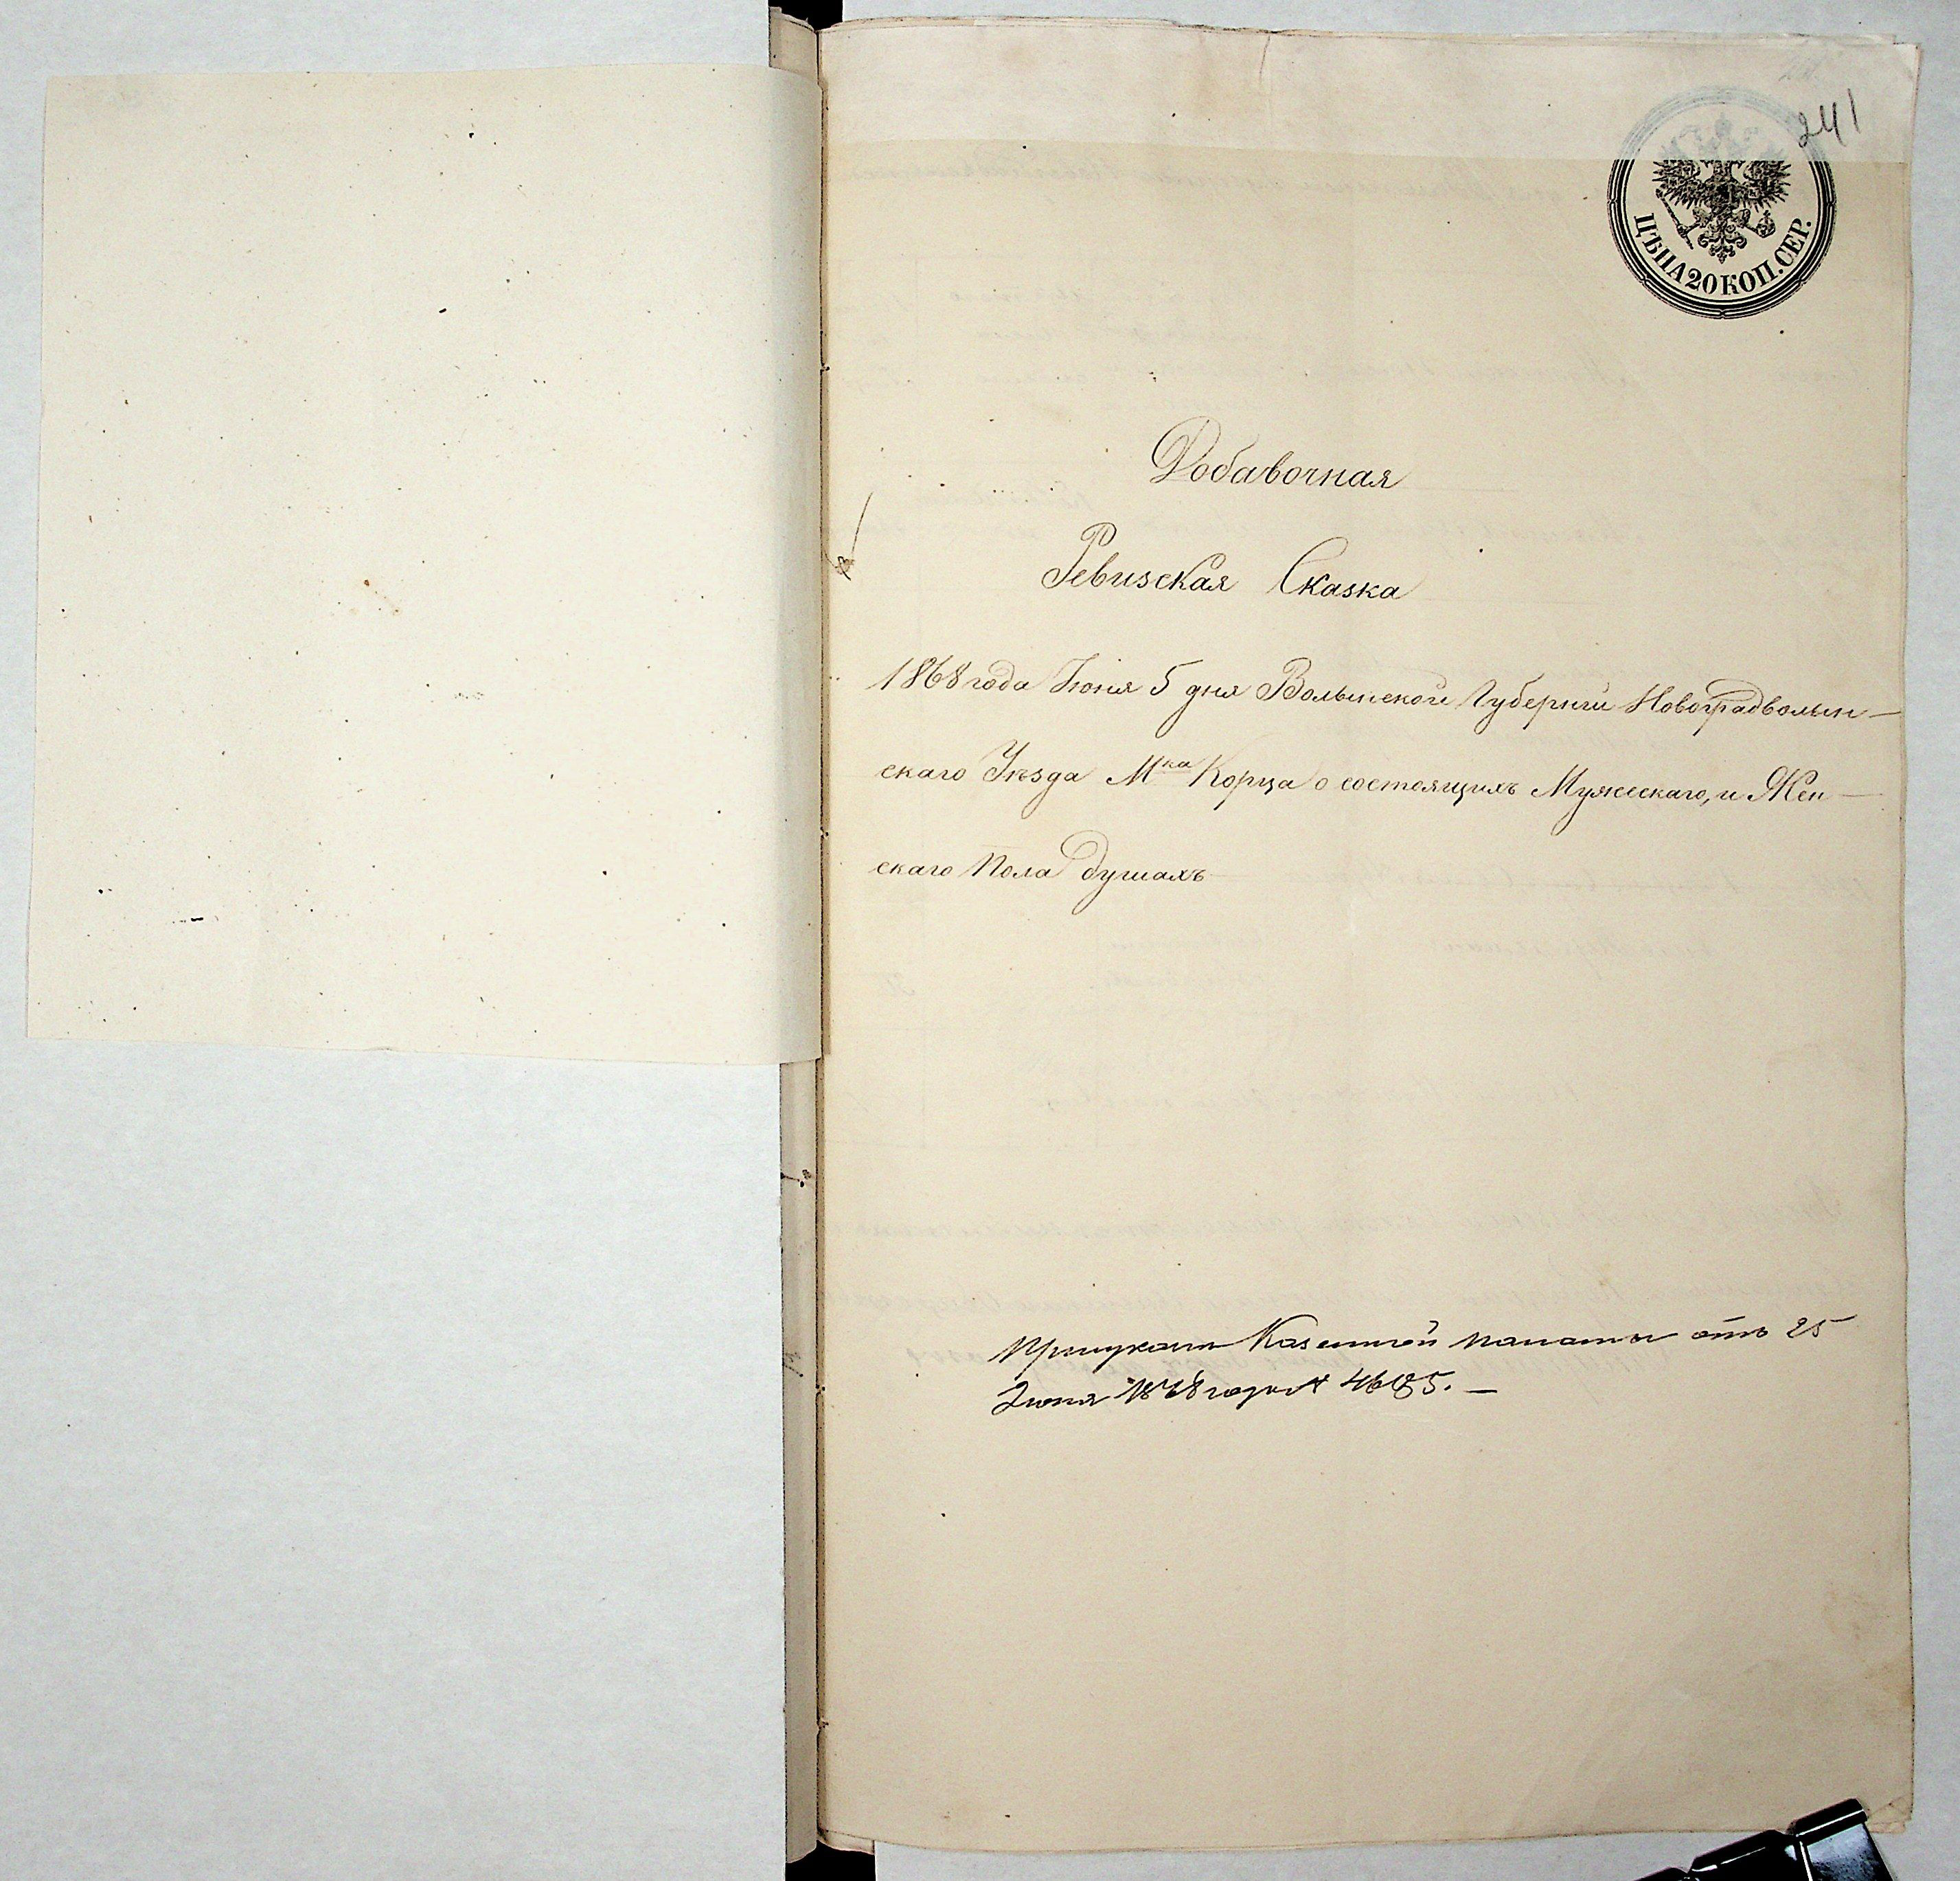 241
ЦѢНА 20 КОП. СЕР.
Добавочная
Ревизская Сказка
1868 года Іюня 5 дня Волынской Губерніи Новоградволын-
скаго Уѣзда Мка Корца о состоящихъ Мужескаго, и Жен-
скаго Пола душахъ
При указѣ Казенной палаты отъ 25
Іюня 1868 года № 4685.